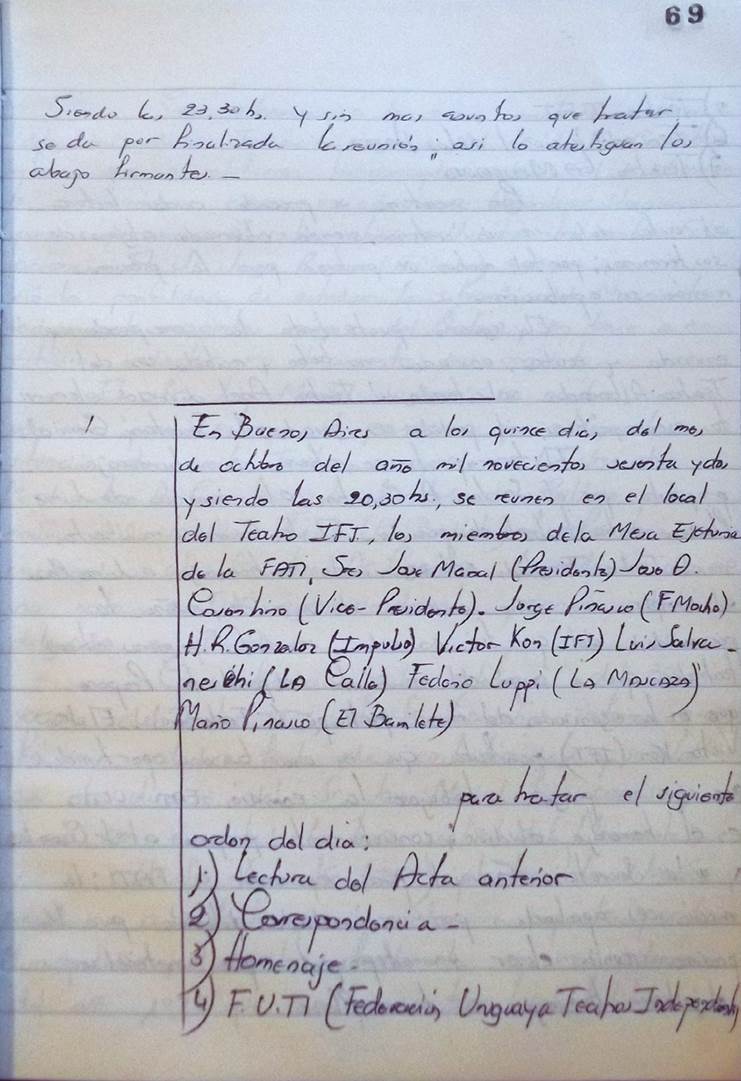 69
Siendo las 23,30 hs. y sin mas asuntos que tratar
se da por finalizada la reunión; asi lo atestiguan los
abajo firmantes. —
1
En Buenos Aires a los quince dias del mes
de octubre del año mil novecientos sesenta y dos
y siendo las 20,30 hs., se reunen en el local
del Teatro IFT, los miembros de la Mesa
de la FATI, Sres José (Presidente) José O.
(Vice-Presidente). Jorge Pinasco (F Mocho)
H.R. Gonzalez (Impulso) Victor Kon (IFT) Luis Salva-
neschi (La Calle) Federico Luppi (La Mascara)
Mario Pinasco (El Bamlete)
para tratar el siguiente
orden del dia:
1) Lectura del Acta anterior
2) Correspondencia -
3) Homenaje -
4) F.U.TI (Federación Uruguaya Teatros Independientes